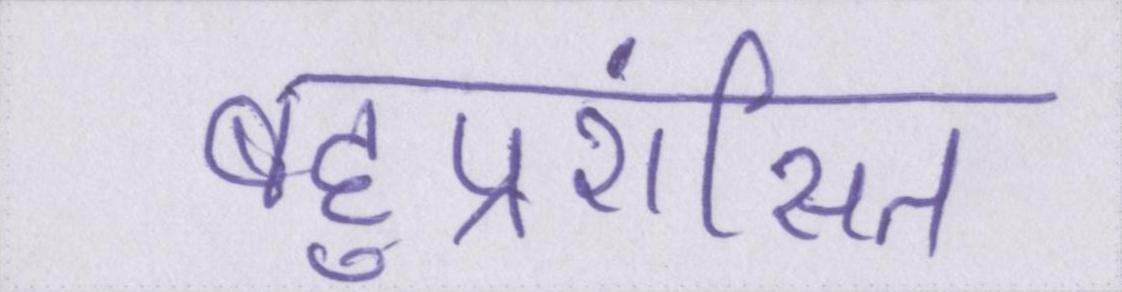 बहुप्रशंसित